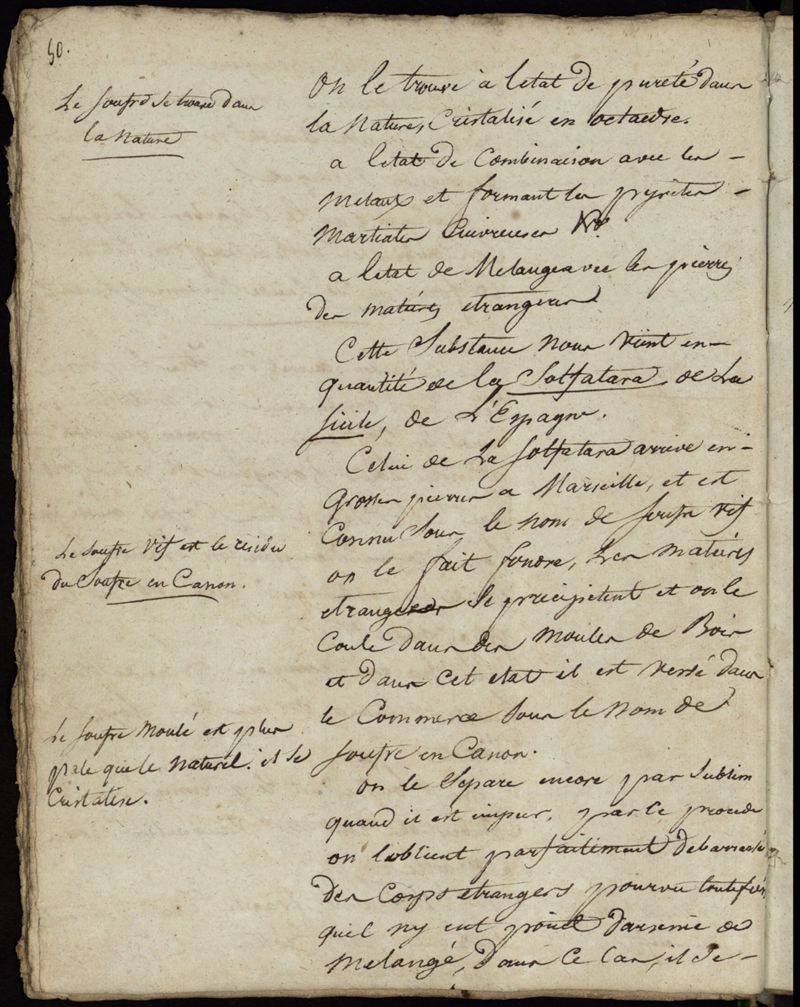 50.
Le soufre se trouve dans
la Nature
On le trouve à letat de pureté dans
la Nature, Cristalisé en octaedre.
a letat de Combinaison avec les
Metaux et formant les pyrites
Martiales Cuivreuses
a letat de Melange avec les pierres
des matieres etrangeres
Cette Substance nous vient en
quantité de la Solfatara, de La
Sicile, de L'Espagne.
Celui de La Solfatara arrive en
Grosses pierres a Marseille, et est
Connu sous le nom de soufre vif
on le fait fondre, Les matieres
etrangeres se precipitent et on le
Coule dans des moules de Bois
et dans cet etat il est versé dans
le Commerce sous le nom de
soufre en Canon.
on le Separe encore par Sublim
quand il est impur, par ce procedé
on lobtient parfaitement debarrassé
des Corps etrangers pourvu toutefois
quil ny eut point darsenic de
Melangé, Dans ce Cas, il se
Le soufre Vif est le residu
du Soufre en Canon.
Le soufre Moulé est plus
pale que le naturel. il se
Cristalise.